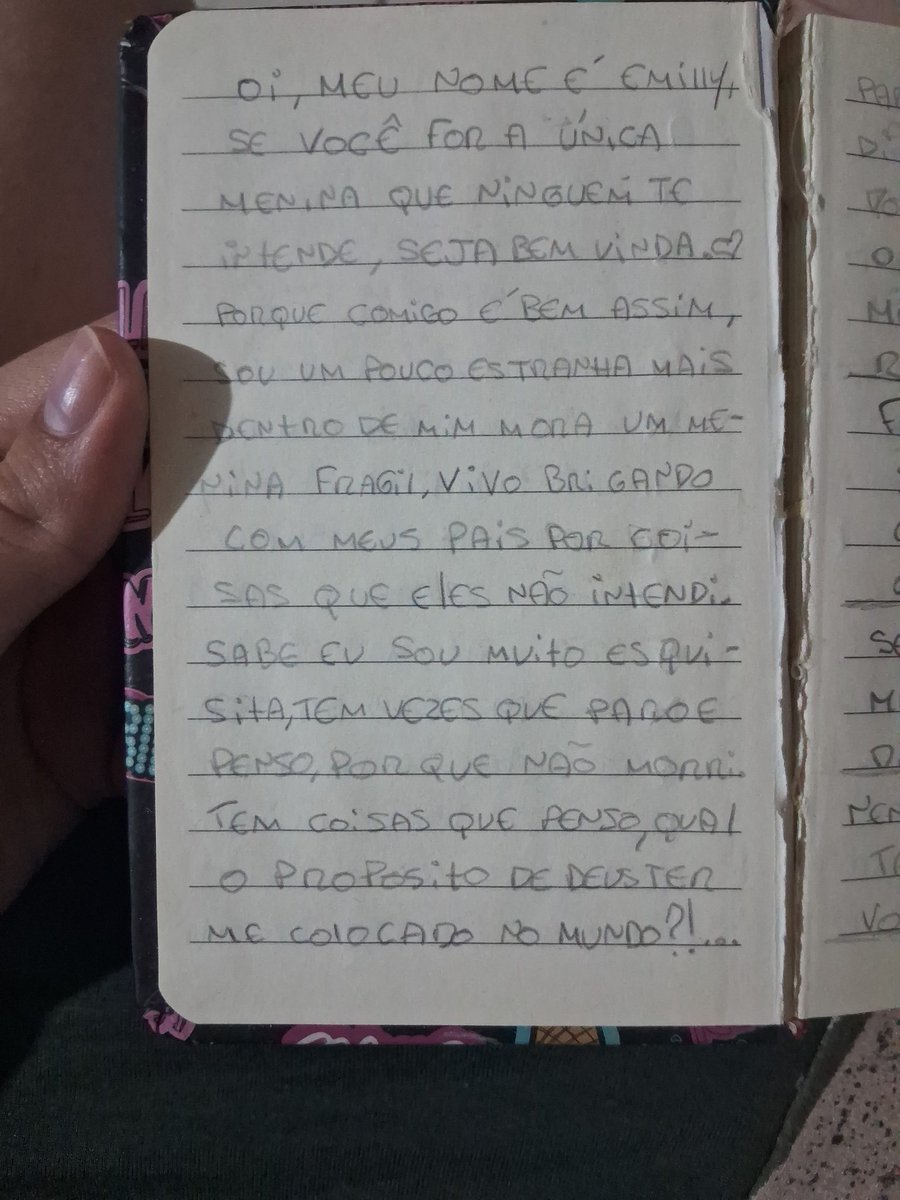 OI, MEU NOME É EMILLY,
SE VOCÊ FOR A ÚNICA
MENINA QUE NINGUEM TE
INTENDE, SEJA BEM VINDA.
PORQUE COMIGO É BEM ASSIM,
SOU UM POUCO ESTRANHA MAIS
DENTRO DE MIM MORA UM ME-
NINA FRAGIL, VIVO BRIGANDO
COM MEUS PAIS POR COI-
SAS QUE ELES NÃO INTENDI.
SABE EU SOU MUITO ESQUI-
SITA, TEM VEZES QUE PARO E
PENSO, POR QUE NÃO MORRI.
TEM COISAS QUE PENSO, QUAL
O PROPOSITO DE DEUS TER
ME COLOCADO NO MUNDO?!...